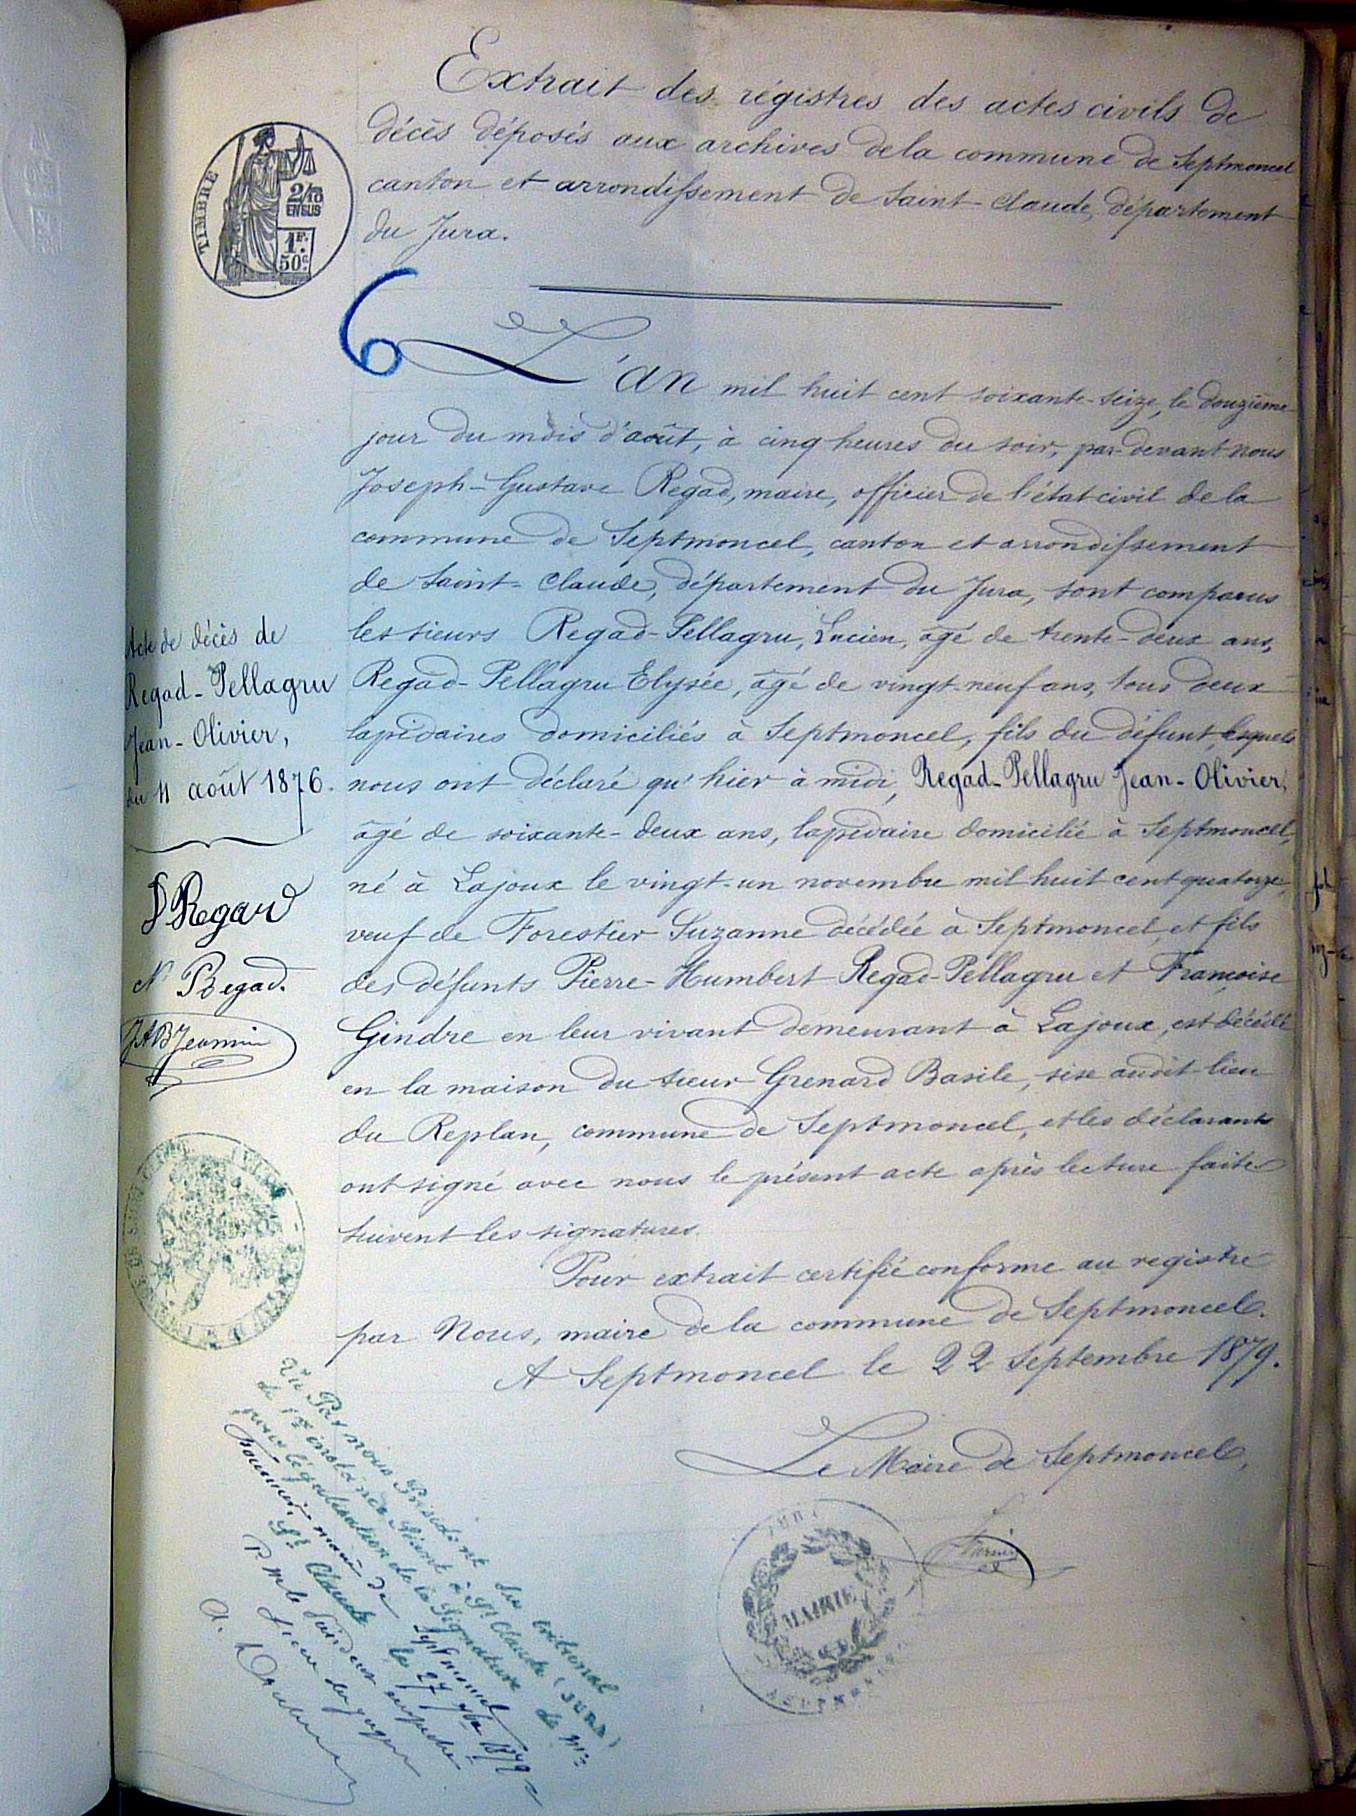 Extrait des régistres des actes civils de
décès déposés aux archives de la commune de Septmoncel
canton et arrondissement de Saint-Claude, département
du Jura.
TIMBRE
2/10
EN SUS
1F.
50c.
6
L'an mil huit cent soixante-seize, le douzième
jour du mois d'août, à cinq heures du soir, par-devant nous
Joseph-Gustave Regad, maire, officier de l'état civil de la
commune de Septmoncel, canton et arrondissement
de Saint-Claude, département du Jura, sont comparus
les sieurs Regad-Pellagru, Lucien, âgé de trente-deux ans,
Regad-Pellagru Elysée, âgé de vingt-neuf ans, tous deux
lapidaires domiciliés à Septmoncel, fils du défunt, lesquels
nous ont déclaré qu'hier à midi, Regad-Pellagru Jean-Olivier,
âgé de soixante-deux ans, lapidaire domicilié à Septmoncel,
né à Lajoux le vingt-un novembre mil huit cent quatorze,
veuf de Forestier Suzanne décédée à Septmoncel, et fils
des défunts Pierre-Humbert Regad-Pellagru et Françoise
Gindre en leur vivant demeurant à Lajoux, est décédé
en la maison du sieur Grenard Basile, sise audit lieu
du Replan, commune de Septmoncel, et les déclarants
ont signé avec nous le présent acte après lecture faite
suivent les signatures.
Pour extrait certifié conforme au registre
par Nous, maire de la commune de Septmoncel.
A Septmoncel le 22 Septembre 1879.
Le Maire de Septmoncel,
MAIRIE
JURA
Acte de décès de
Regad-Pellagru
Jean-Olivier,
du 11 août 1876.
Regard
N Regad.
JABJeannin
Vu Par nous Président du tribunal
de 1re instance séant à St Claude (Jura)
pour légalisation de la Signature de Mr
maire de Septmoncel
St Claude le 27 7bre 1879